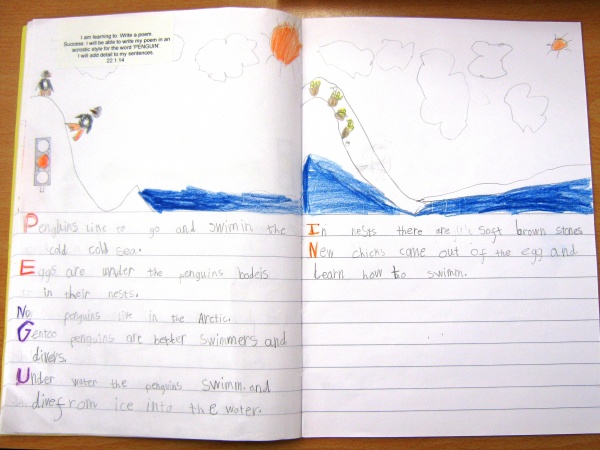 I am learning to: Write a poem.
Success: I will be able to write my poem in an
acrostic style for the word 'PENGUIN'
I will add detail to my sentences.
22.1.14
Penguins like to go and swim in the
cold cold sea.
Eggs are under the penguins bodeis
in their nests.
No penguins live in the Arctic.
Gentoo penguins are better swimmers and
divers.
Under water the penguins swimm and
dive from ice into the water.
In nests there are soft brown stones
New chicks came out of the egg and
learn how to swimm.